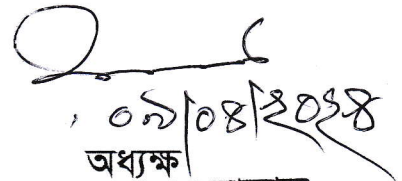 ০৯/০৪/২০২৪
অধ্যক্ষ